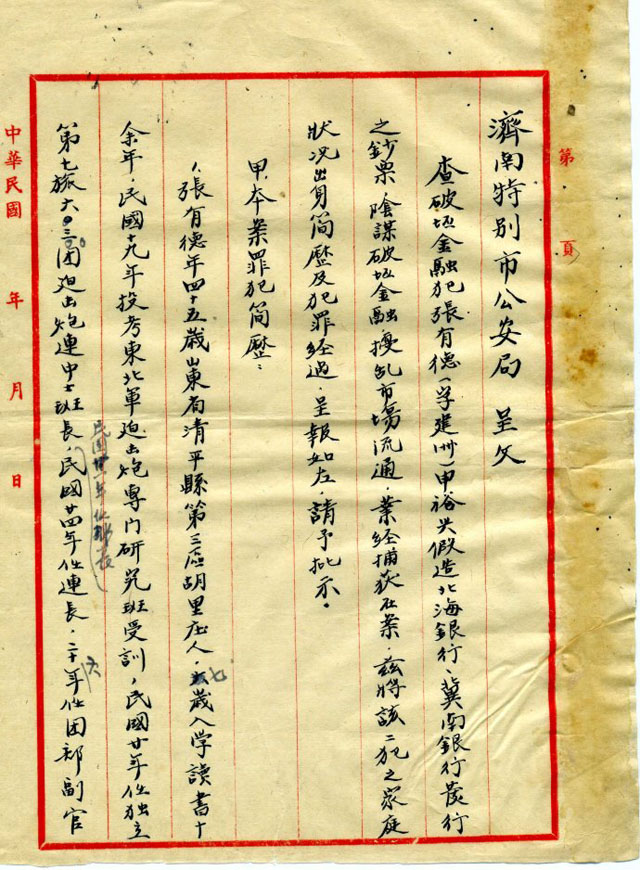 第　頁
濟南特别市公安局　呈文
查破坯金融犯張有德（字建州）申裕兴假造北海銀行、冀南銀行發行
之鈔票，陰謀破坯金融擾乱市場流通，業經捕获在案，兹將該二犯之家庭
狀况出身简歷及犯罪經過，呈報如左，請予批示。
甲、本案罪犯简歷：
1、張有德年四十五歲山東省清平縣第三區胡里庄人，七歲入学讀書十
余年，民國十九年投考東北軍迫击炮專门研究班受訓，民國廿年任独立
民國廿二年任排長
第七旅六〇三团迫击炮連中士班長，民國廿四年任連長，二十六年任团部副官
中華民國　年　月　日